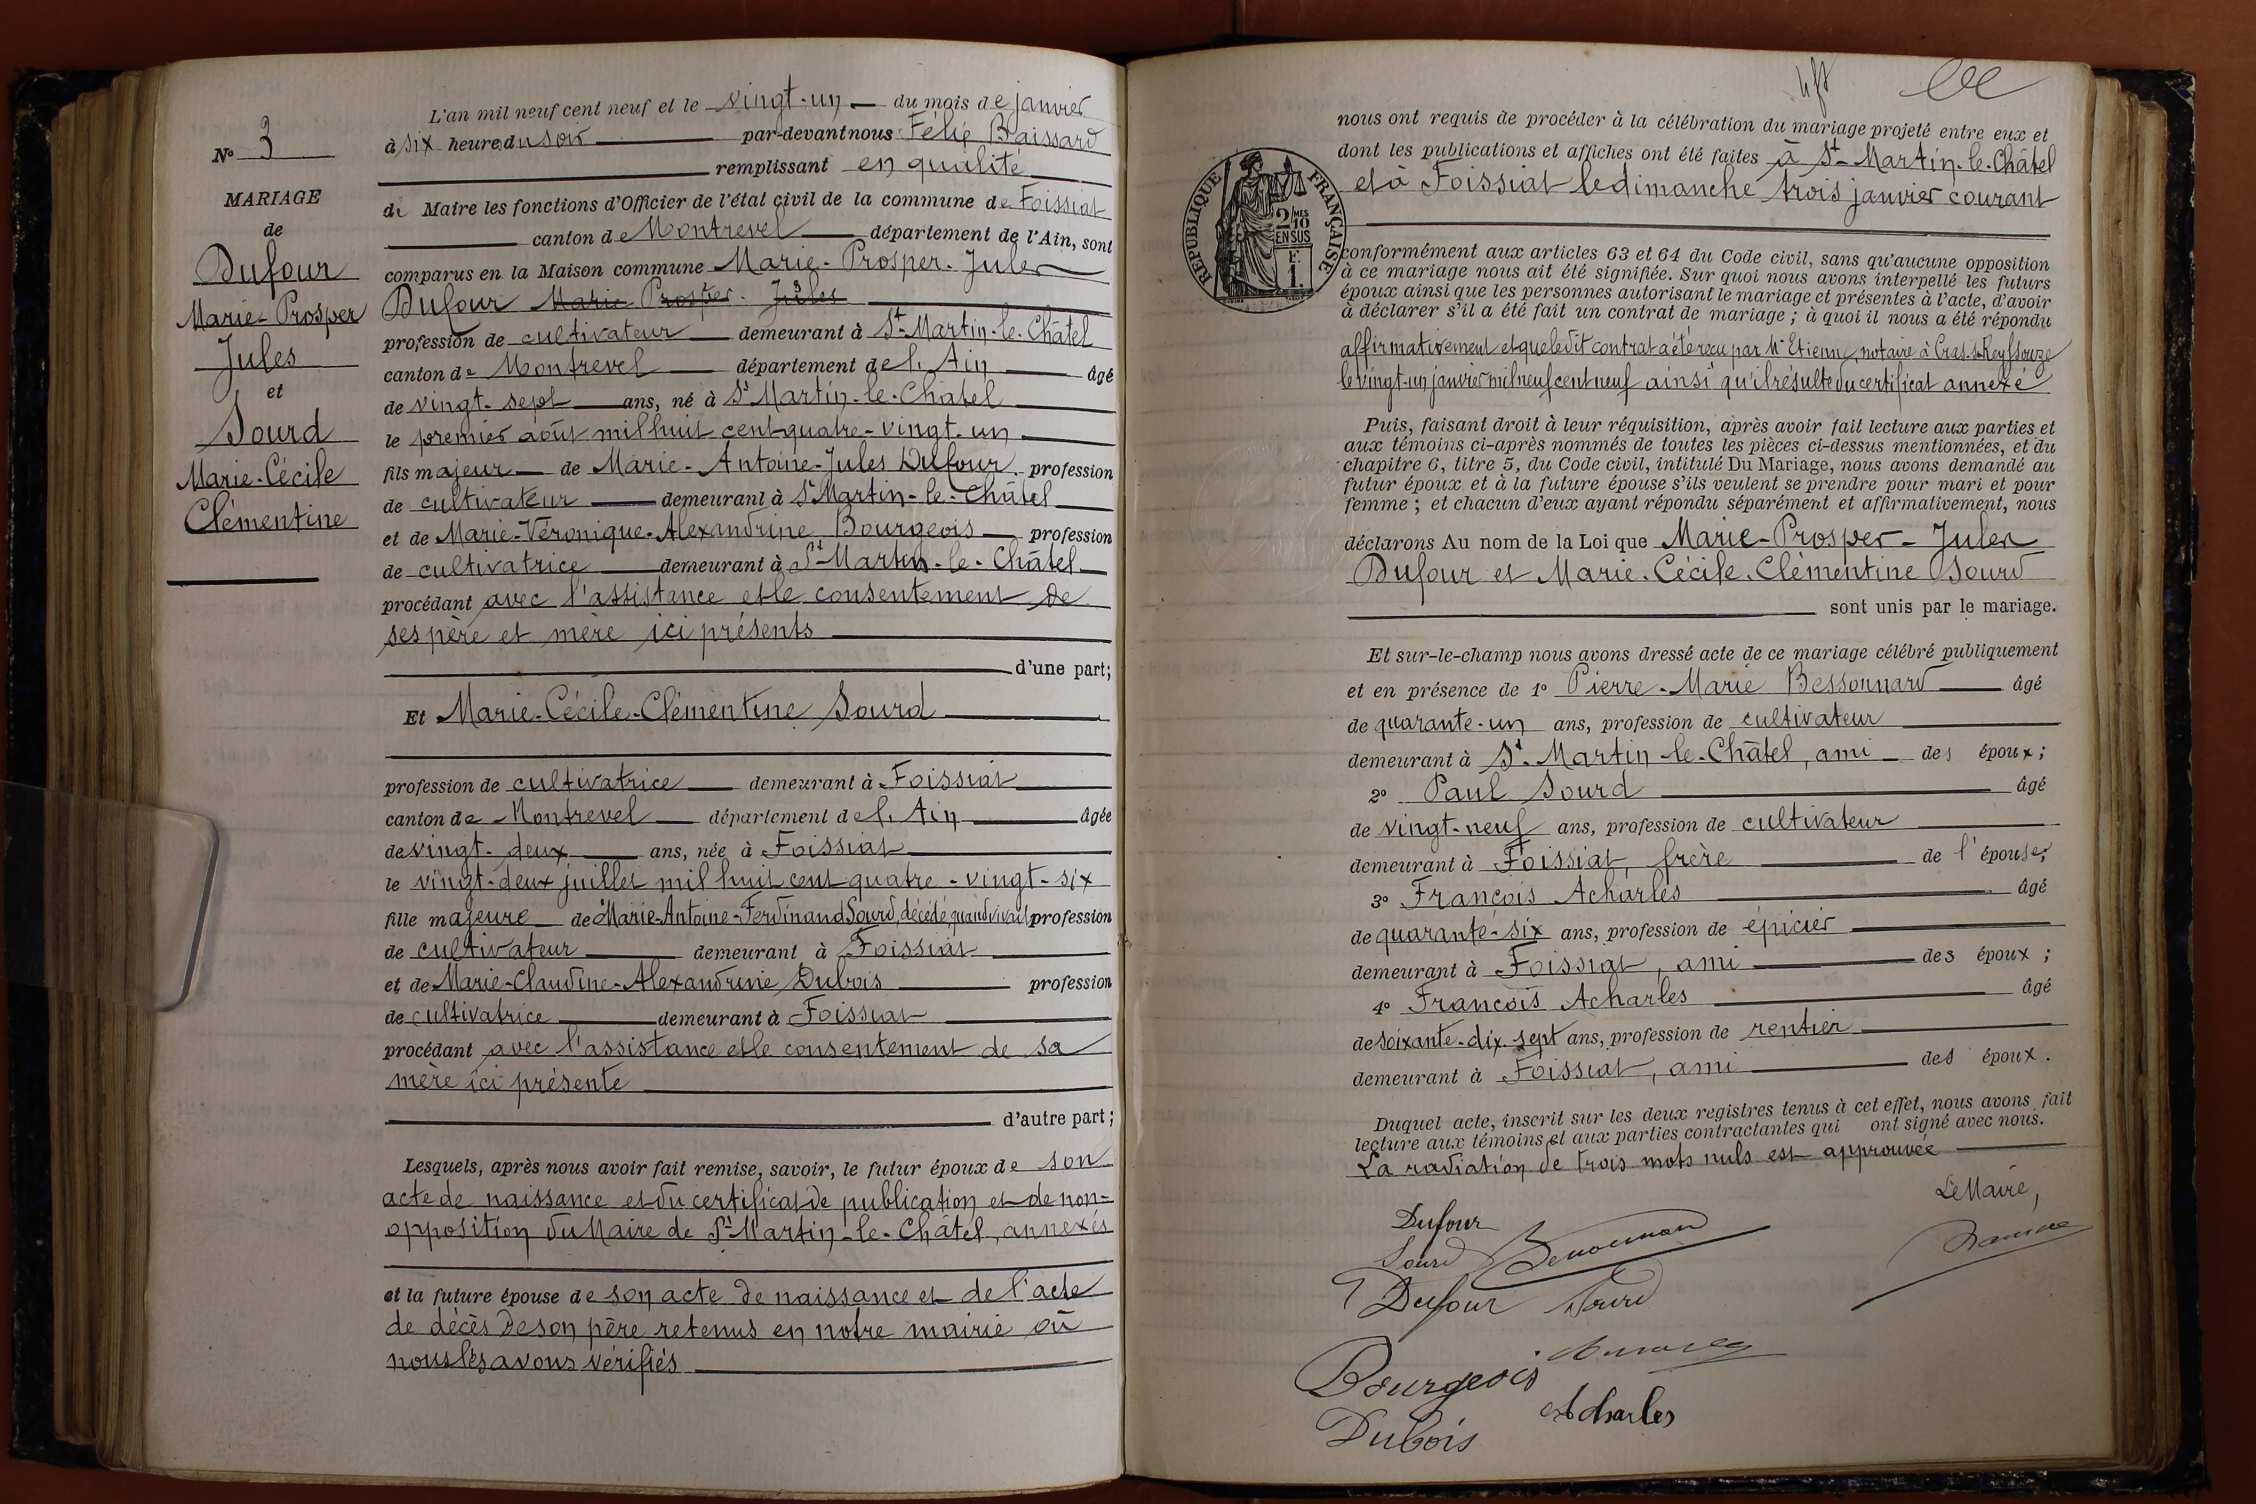 N° 3
MARIAGE
de
Dufour
Marie-Prosper
Jules
et
Sourd
Marie-Cécile
Clémentine
L'an mil neuf cent neuf et le vingt-un du mois de janvier
à six heure du soir par-devant nous Félix Braissard
remplissant en qualité
de Maire les fonctions d'Officier de l'état civil de la commune de Foissiat
canton de Montrevel département de l'Ain, sont
comparus en la Maison commune Marie-Prosper-Jules
Dufour Marie Prosper. Jules
profession de cultivateur demeurant à St-Martin-le-Châtel
canton de Montrevel département de l'Ain âgé
de vingt-sept ans, né à St Martin-le-Châtel
le premier août mil huit cent quatre-vingt-un
fils majeur de Marie-Antoine-Jules Dufour profession
de cultivateur demeurant à St Martin-le-Châtel
et de Marie-Véronique-Alexandrine Bourgeois profession
de cultivatrice demeurant à St-Martin-le-Châtel
procédant avec l'assistance et le consentement de
ses père et mère ici présents
d'une part;
Et Marie-Cécile-Clémentine Sourd
profession de cultivatrice demeurant à Foissiat
canton de Montrevel département de l'Ain âgée
de vingt-deux ans, née à Foissiat
le vingt-deux juillet mil huit cent quatre-vingt-six
fille majeure de Marie-Antoine-Ferdinand Sourd, décédé, quand vivait profession
de cultivateur demeurant à Foissiat
et de Marie-Claudine-Alexandrine Dubois profession
de cultivatrice demeurant à Foissiat
procédant avec l'assistance et le consentement de sa
mère ici présente
d'autre part;
Lesquels, après nous avoir fait remise, savoir, le futur époux de son
acte de naissance et du certificat de publication et de non=
opposition du Maire de St-Martin-le-Châtel, annexés
et la future épouse de son acte de naissance et de l'acte
de décès de son père retenus en notre mairie où
nous les avons vérifiés
RÉPUBLIQUE FRANÇAISE
2/10 MES
EN SUS
F.
1.
nous ont requis de procéder à la célébration du mariage projeté entre eux et
dont les publications et affiches ont été faites à St-Martin-le-Châtel
et à Foissiat le dimanche trois janvier courant
conformément aux articles 63 et 64 du Code civil, sans qu'aucune opposition
à ce mariage nous ait été signifiée. Sur quoi nous avons interpellé les futurs
époux ainsi que les personnes autorisant le mariage et présentes à l'acte, d'avoir
à déclarer s'il a été fait un contrat de mariage ; à quoi il nous a été répondu
affirmativement et que ledit contrat a été reçu par Me Etienne, notaire à Cras-s-Reyssouze
le vingt-un janvier mil neuf cent neuf ainsi qu'il résulte du certificat annexé
Puis, faisant droit à leur réquisition, après avoir fait lecture aux parties et
aux témoins ci-après nommés de toutes les pièces ci-dessus mentionnées, et du
chapitre 6, titre 5, du Code civil, intitulé Du Mariage, nous avons demandé au
futur époux et à la future épouse s'ils veulent se prendre pour mari et pour
femme ; et chacun d'eux ayant répondu séparément et affirmativement, nous
déclarons Au nom de la Loi que Marie-Prosper-Jules
Dufour et Marie-Cécile-Clémentine Sourd
sont unis par le mariage.
Et sur-le-champ nous avons dressé acte de ce mariage célébré publiquement
et en présence de 1° Pierre-Marie Bessonnard âgé
de quarante-un ans, profession de cultivateur
demeurant à St-Martin-le-Châtel, ami des époux ;
2° Paul Sourd âgé
de vingt-neuf ans, profession de cultivateur
demeurant à Foissiat, frère de l'épouse;
3° François Acharles âgé
de quarante-six ans, profession de épicier
demeurant à Foissiat, ami des époux ;
4° François Acharles âgé
de soixante-dix-sept ans, profession de rentier
demeurant à Foissiat, ami des époux.
Duquel acte, inscrit sur les deux registres tenus à cet effet, nous avons fait
lecture aux témoins et aux parties contractantes qui ont signé avec nous.
La radiation de trois mots nuls est approuvée
Le Maire,
Dufour
Sourd
Dufour Sourd
Bourgeois
Acharles
Dubois